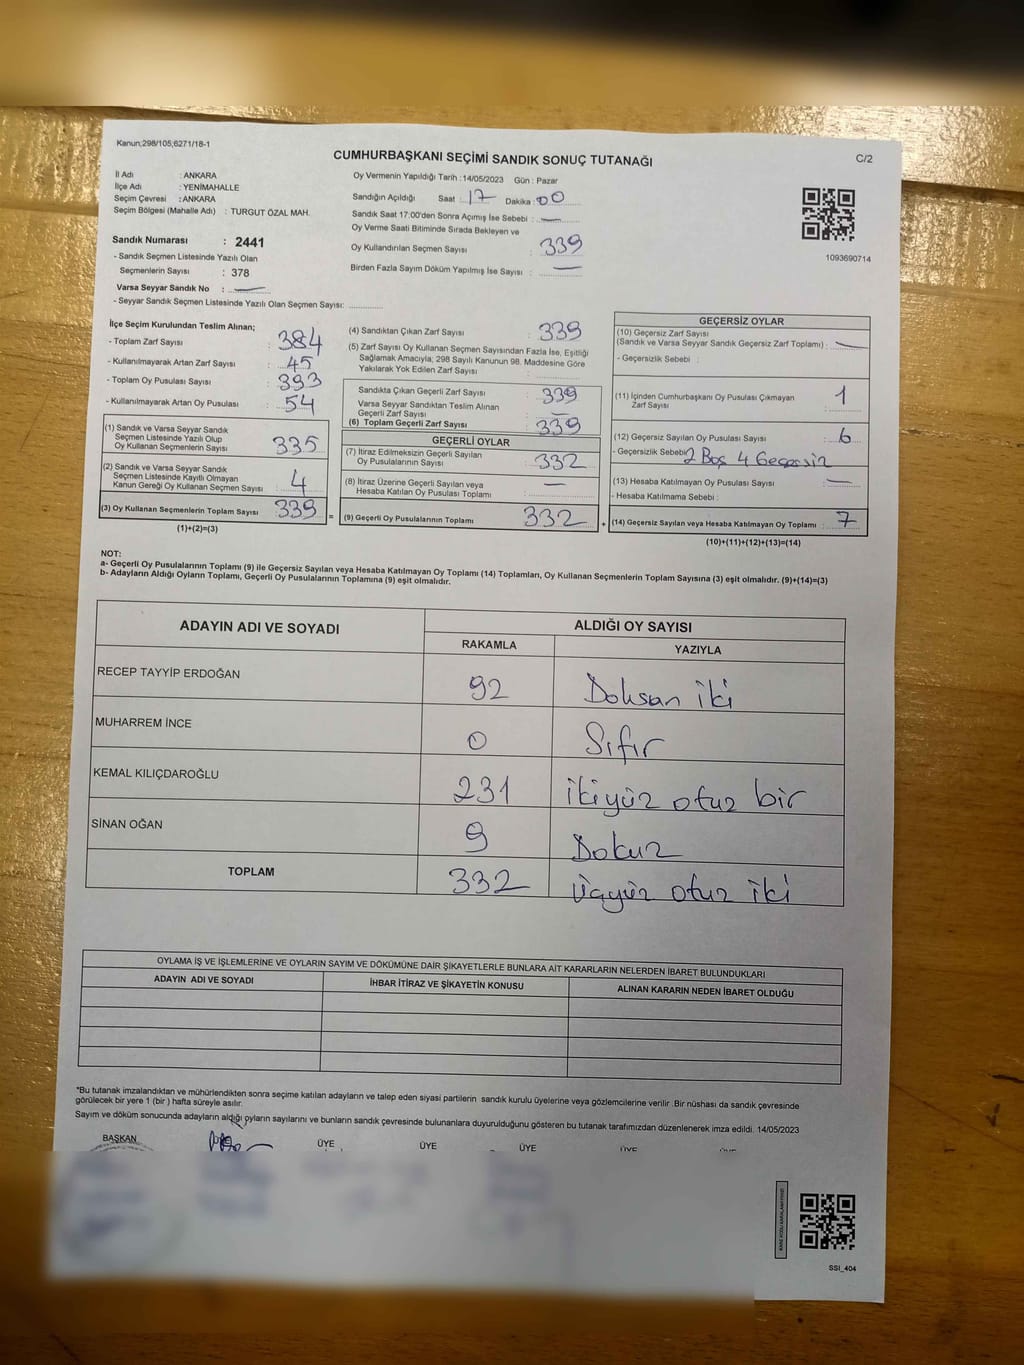 Kanun;298/105,6271/18-1
CUMHURBAŞKANI SEÇİMİ SANDIK SONUÇ TUTANAĞI
C/2
İl Adı : ANKARA
İlçe Adı : YENİMAHALLE
Seçim Çevresi : ANKARA
Seçim Bölgesi (Mahalle Adı) : TURGUT ÖZAL MAH.
Sandık Numarası : 2441
- Sandık Seçmen Listesinde Yazılı Olan
Seçmenlerin Sayısı : 378
Varsa Seyyar Sandık No : —
- Seyyar Sandık Seçmen Listesinde Yazılı Olan Seçmen Sayısı: ............
Oy Vermenin Yapıldığı Tarih : 14/05/2023 Gün : Pazar
Sandığın Açıldığı Saat : 17 Dakika : 00
Sandık Saat 17:00'den Sonra Açımış İse Sebebi : —
Oy Verme Saati Bitiminde Sırada Bekleyen ve
Oy Kullandırılan Seçmen Sayısı : 339
Birden Fazla Sayım Döküm Yapılmış İse Sayısı : —
1093690714
İlçe Seçim Kurulundan Teslim Alınan;
- Toplam Zarf Sayısı : 384
- Kullanılmayarak Artan Zarf Sayısı : 45
- Toplam Oy Pusulası Sayısı : 393
- Kullanılmayarak Artan Oy Pusulası : 54
(1) Sandık ve Varsa Seyyar Sandık
Seçmen Listesinde Yazılı Olup
Oy Kullanan Seçmenlerin Sayısı 335
(2) Sandık ve Varsa Seyyar Sandık
Seçmen Listesinde Kayıtlı Olmayan
Kanun Gereği Oy Kullanan Seçmen Sayısı : 4
(3) Oy Kullanan Seçmenlerin Toplam Sayısı 339
(1)+(2)=(3)
(4) Sandıktan Çıkan Zarf Sayısı : 339
(5) Zarf Sayısı Oy Kullanan Seçmen Sayısından Fazla İse, Eşitliği
Sağlamak Amacıyla; 298 Sayılı Kanunun 98. Maddesine Göre
Yakılarak Yok Edilen Zarf Sayısı :
Sandıkta Çıkan Geçerli Zarf Sayısı : 339
Varsa Seyyar Sandıktan Teslim Alınan
Geçerli Zarf Sayısı : —
(6) Toplam Geçerli Zarf Sayısı : 339
GEÇERLİ OYLAR
(7) İtiraz Edilmeksizin Geçerli Sayılan
Oy Pusulalarının Sayısı : 332
(8) İtiraz Üzerine Geçerli Sayılan veya
Hesaba Katılan Oy Pusulası Toplamı : —
(9) Geçerli Oy Pusulalarının Toplamı : 332
GEÇERSİZ OYLAR
(10) Geçersiz Zarf Sayısı
(Sandık ve Varsa Seyyar Sandık Geçersiz Zarf Toplamı) : —
- Geçersizlik Sebebi :
(11) İçinden Cumhurbaşkanı Oy Pusulası Çıkmayan
Zarf Sayısı : 1
(12) Geçersiz Sayılan Oy Pusulası Sayısı : 6
- Geçersizlik Sebebi: 2 Boş 4 Geçersiz
(13) Hesaba Katılmayan Oy Pusulası Sayısı : —
- Hesaba Katılmama Sebebi :
(14) Geçersiz Sayılan veya Hesaba Katılmayan Oy Toplamı : 7
(10)+(11)+(12)+(13)=(14)
NOT:
a- Geçerli Oy Pusulalarının Toplamı (9) ile Geçersiz Sayılan veya Hesaba Katılmayan Oy Toplamı (14) Toplamları, Oy Kullanan Seçmenlerin Toplam Sayısına (3) eşit olmalıdır. (9)+(14)=(3)
b- Adayların Aldığı Oyların Toplamı, Geçerli Oy Pusulalarının Toplamına (9) eşit olmalıdır.
ADAYIN ADI VE SOYADI ALDIĞI OY SAYISI
RAKAMLA YAZIYLA
RECEP TAYYİP ERDOĞAN 92 Doksan iki
MUHARREM İNCE 0 Sıfır
KEMAL KILIÇDAROĞLU 231 ikiyüz otuz bir
SİNAN OĞAN 9 Dokuz
TOPLAM 332 Üçyüz otuz iki
OYLAMA İŞ VE İŞLEMLERİNE VE OYLARIN SAYIM VE DÖKÜMÜNE DAİR ŞİKAYETLERLE BUNLARA AİT KARARLARIN NELERDEN İBARET BULUNDUKLARI
ADAYIN ADI VE SOYADI İHBAR İTİRAZ VE ŞİKAYETİN KONUSU ALINAN KARARIN NEDEN İBARET OLDUĞU
*Bu tutanak imzalandıktan ve mühürlendikten sonra seçime katılan adayların ve talep eden siyasi partilerin sandık kurulu üyelerine veya gözlemcilerine verilir .Bir nüshası da sandık çevresinde
görülecek bir yere 1 (bir ) hafta süreyle asılır.
Sayım ve döküm sonucunda adayların aldığı oyların sayılarını ve bunların sandık çevresinde bulunanlara duyurulduğunu gösteren bu tutanak tarafımızdan düzenlenerek imza edildi. 14/05/2023
BAŞKAN ÜYE ÜYE ÜYE ÜYE
SSI_404